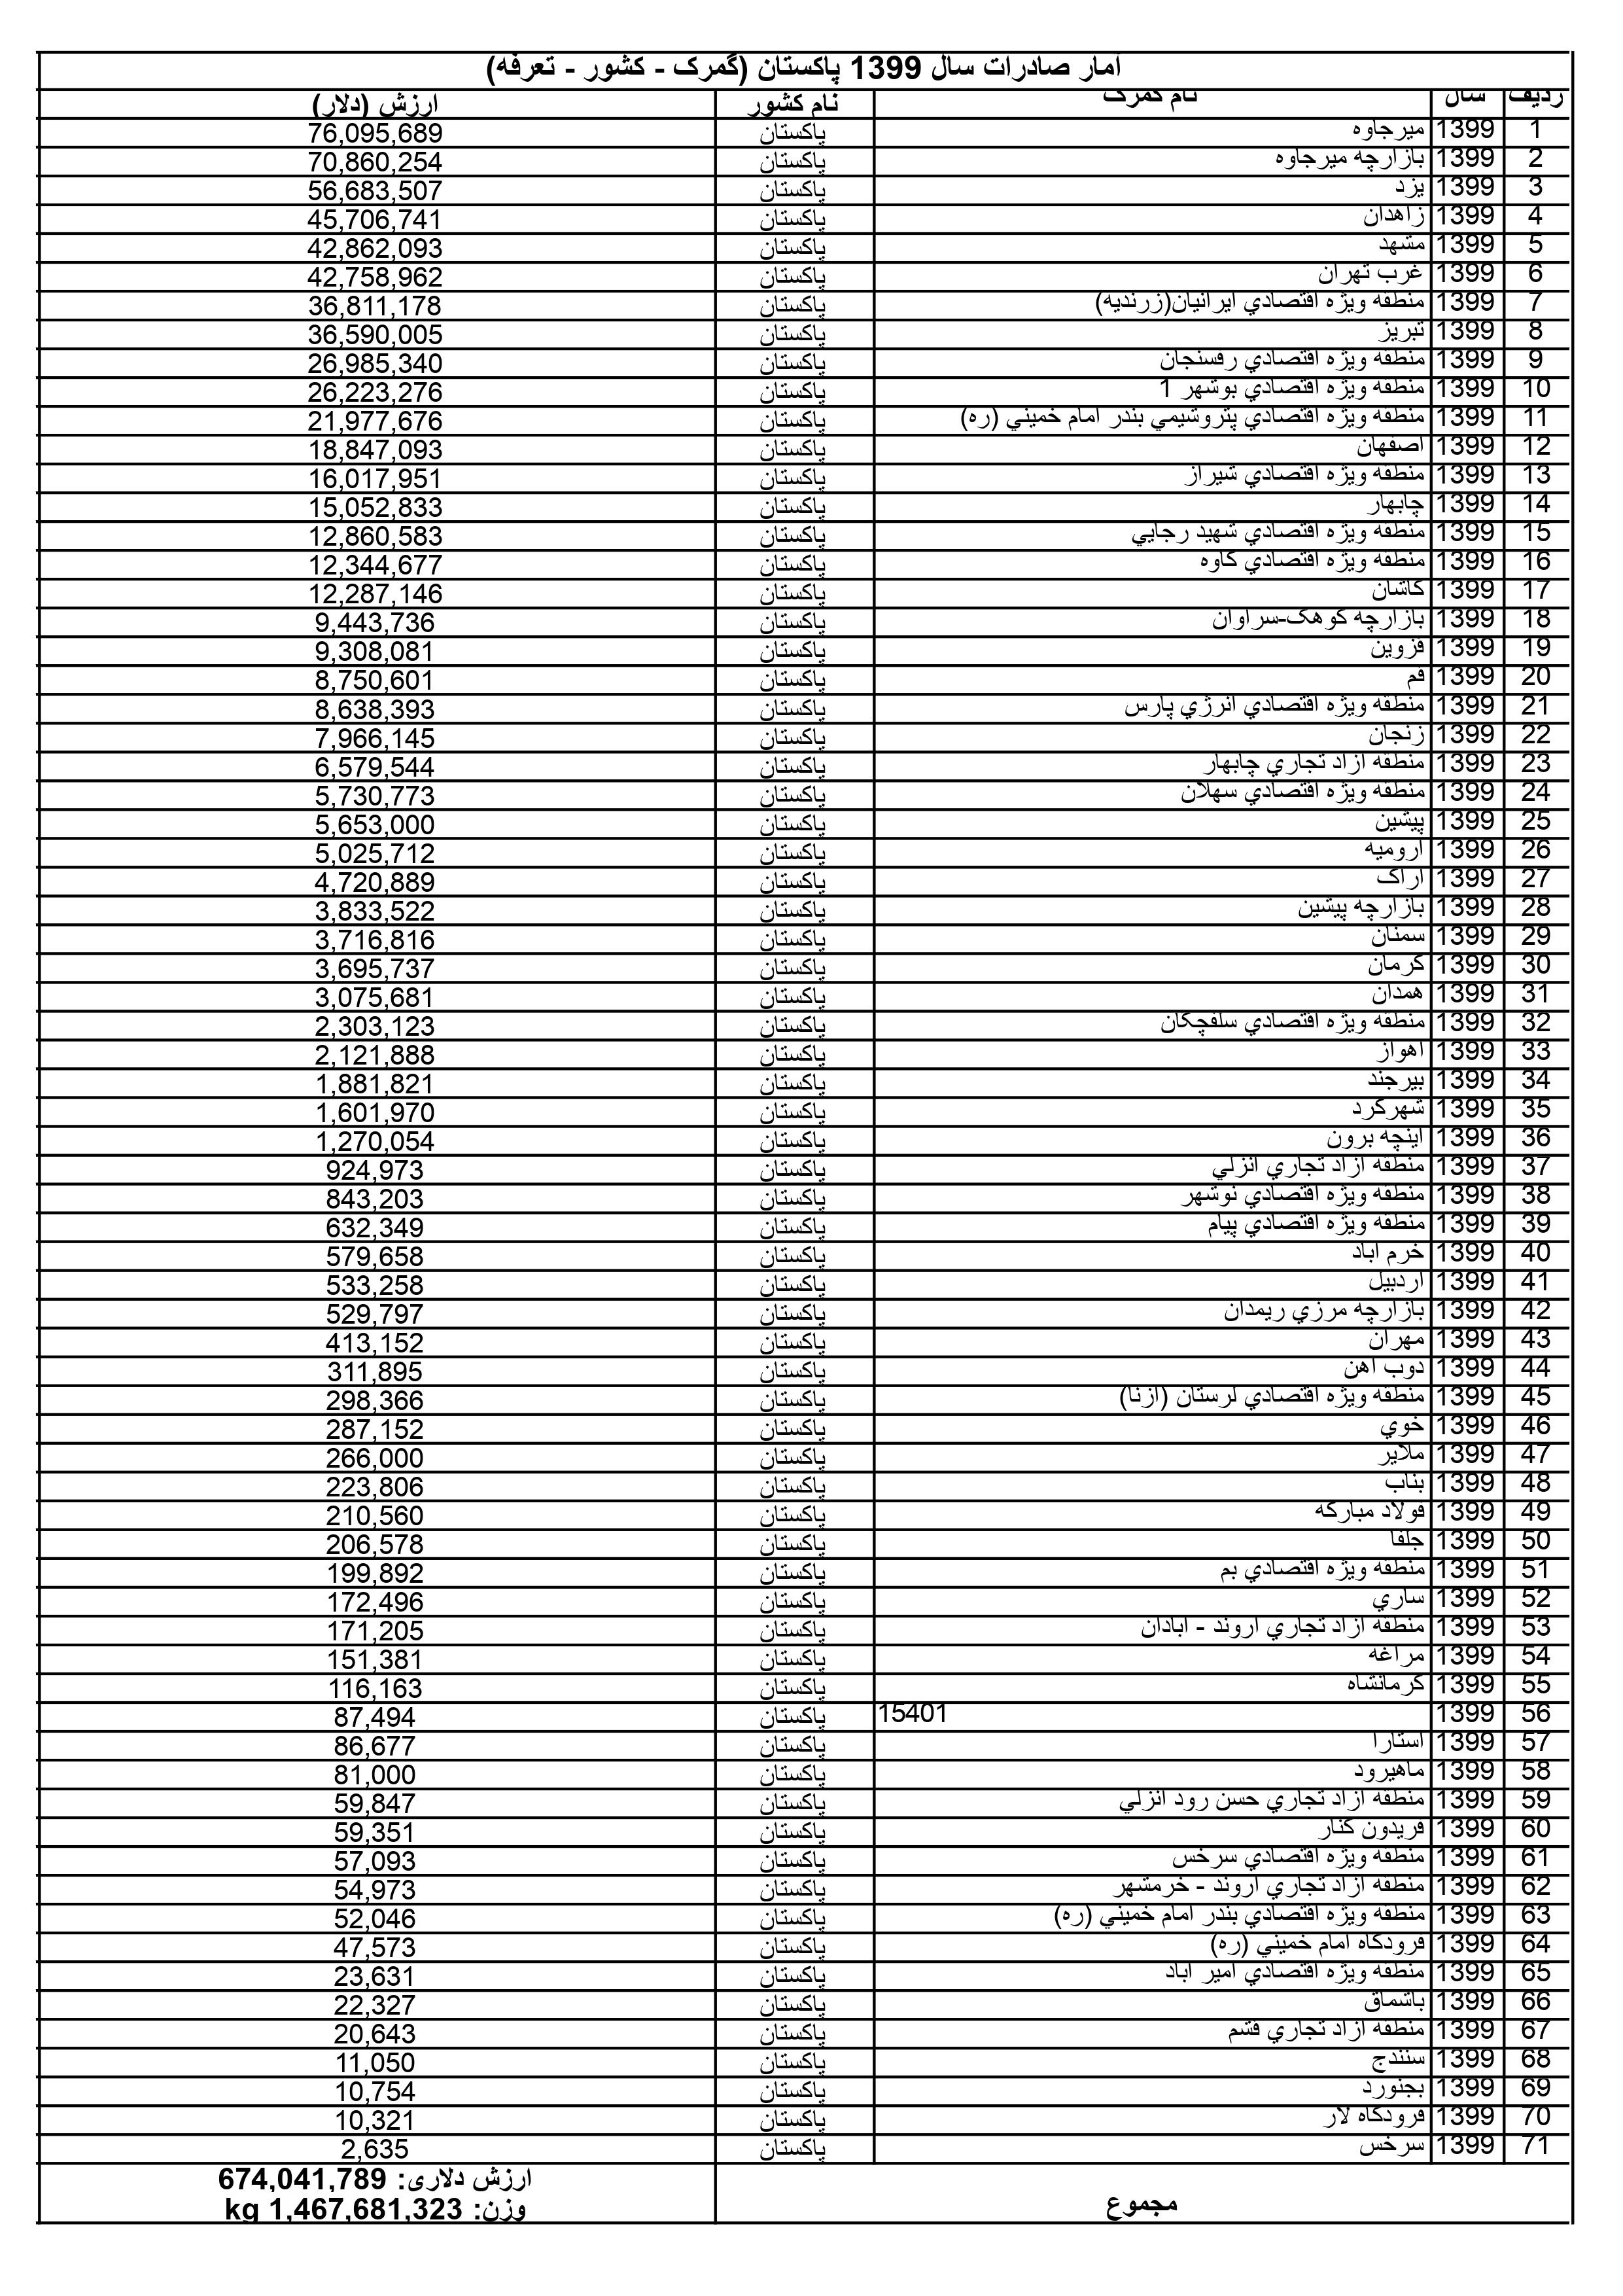 آمار صادرات سال 1399 پاکستان (گمرک - کشور - تعرفه)
ردیف سال نام گمرک نام کشور ارزش (دلار)
1 1399 ميرجاوه پاکستان 76,095,689
2 1399 بازارچه ميرجاوه پاکستان 70,860,254
3 1399 يزد پاکستان 56,683,507
4 1399 زاهدان پاکستان 45,706,741
5 1399 مشهد پاکستان 42,862,093
6 1399 غرب تهران پاکستان 42,758,962
7 1399 منطقه ويژه اقتصادي ايرانيان(زرنديه) پاکستان 36,811,178
8 1399 تبريز پاکستان 36,590,005
9 1399 منطقه ويژه اقتصادي رفسنجان پاکستان 26,985,340
10 1399 منطقه ويژه اقتصادي بوشهر 1 پاکستان 26,223,276
11 1399 منطقه ويژه اقتصادي پتروشيمي بندر امام خميني (ره) پاکستان 21,977,676
12 1399 اصفهان پاکستان 18,847,093
13 1399 منطقه ويژه اقتصادي شيراز پاکستان 16,017,951
14 1399 چابهار پاکستان 15,052,833
15 1399 منطقه ويژه اقتصادي شهيد رجايي پاکستان 12,860,583
16 1399 منطقه ويژه اقتصادي کاوه پاکستان 12,344,677
17 1399 کاشان پاکستان 12,287,146
18 1399 بازارچه کوهک-سراوان پاکستان 9,443,736
19 1399 قزوين پاکستان 9,308,081
20 1399 قم پاکستان 8,750,601
21 1399 منطقه ويژه اقتصادي انرژي پارس پاکستان 8,638,393
22 1399 زنجان پاکستان 7,966,145
23 1399 منطقه ازاد تجاري چابهار پاکستان 6,579,544
24 1399 منطقه ويژه اقتصادي سهلان پاکستان 5,730,773
25 1399 پيشين پاکستان 5,653,000
26 1399 اروميه پاکستان 5,025,712
27 1399 اراک پاکستان 4,720,889
28 1399 بازارچه پيشين پاکستان 3,833,522
29 1399 سمنان پاکستان 3,716,816
30 1399 کرمان پاکستان 3,695,737
31 1399 همدان پاکستان 3,075,681
32 1399 منطقه ويژه اقتصادي سلفچگان پاکستان 2,303,123
33 1399 اهواز پاکستان 2,121,888
34 1399 بيرجند پاکستان 1,881,821
35 1399 شهرکرد پاکستان 1,601,970
36 1399 اينچه برون پاکستان 1,270,054
37 1399 منطقه ازاد تجاري انزلي پاکستان 924,973
38 1399 منطقه ويژه اقتصادي نوشهر پاکستان 843,203
39 1399 منطقه ويژه اقتصادي پيام پاکستان 632,349
40 1399 خرم اباد پاکستان 579,658
41 1399 اردبيل پاکستان 533,258
42 1399 بازارچه مرزي ريمدان پاکستان 529,797
43 1399 مهران پاکستان 413,152
44 1399 ذوب اهن پاکستان 311,895
45 1399 منطقه ويژه اقتصادي لرستان (ازنا) پاکستان 298,366
46 1399 خوي پاکستان 287,152
47 1399 ملاير پاکستان 266,000
48 1399 بناب پاکستان 223,806
49 1399 فولاد مبارکه پاکستان 210,560
50 1399 جلفا پاکستان 206,578
51 1399 منطقه ويژه اقتصادي بم پاکستان 199,892
52 1399 ساري پاکستان 172,496
53 1399 منطقه ازاد تجاري اروند - ابادان پاکستان 171,205
54 1399 مراغه پاکستان 151,381
55 1399 کرمانشاه پاکستان 116,163
56 1399 15401 پاکستان 87,494
57 1399 استارا پاکستان 86,677
58 1399 ماهيرود پاکستان 81,000
59 1399 منطقه ازاد تجاري حسن رود انزلي پاکستان 59,847
60 1399 فريدون کنار پاکستان 59,351
61 1399 منطقه ويژه اقتصادي سرخس پاکستان 57,093
62 1399 منطقه ازاد تجاري اروند - خرمشهر پاکستان 54,973
63 1399 منطقه ويژه اقتصادي بندر امام خميني (ره) پاکستان 52,046
64 1399 فرودگاه امام خميني (ره) پاکستان 47,573
65 1399 منطقه ويژه اقتصادي امير اباد پاکستان 23,631
66 1399 باشماق پاکستان 22,327
67 1399 منطقه ازاد تجاري قشم پاکستان 20,643
68 1399 سنندج پاکستان 11,050
69 1399 بجنورد پاکستان 10,754
70 1399 فرودگاه لار پاکستان 10,321
71 1399 سرخس پاکستان 2,635
مجموع
ارزش دلاری: 674,041,789
وزن: 1,467,681,323 kg